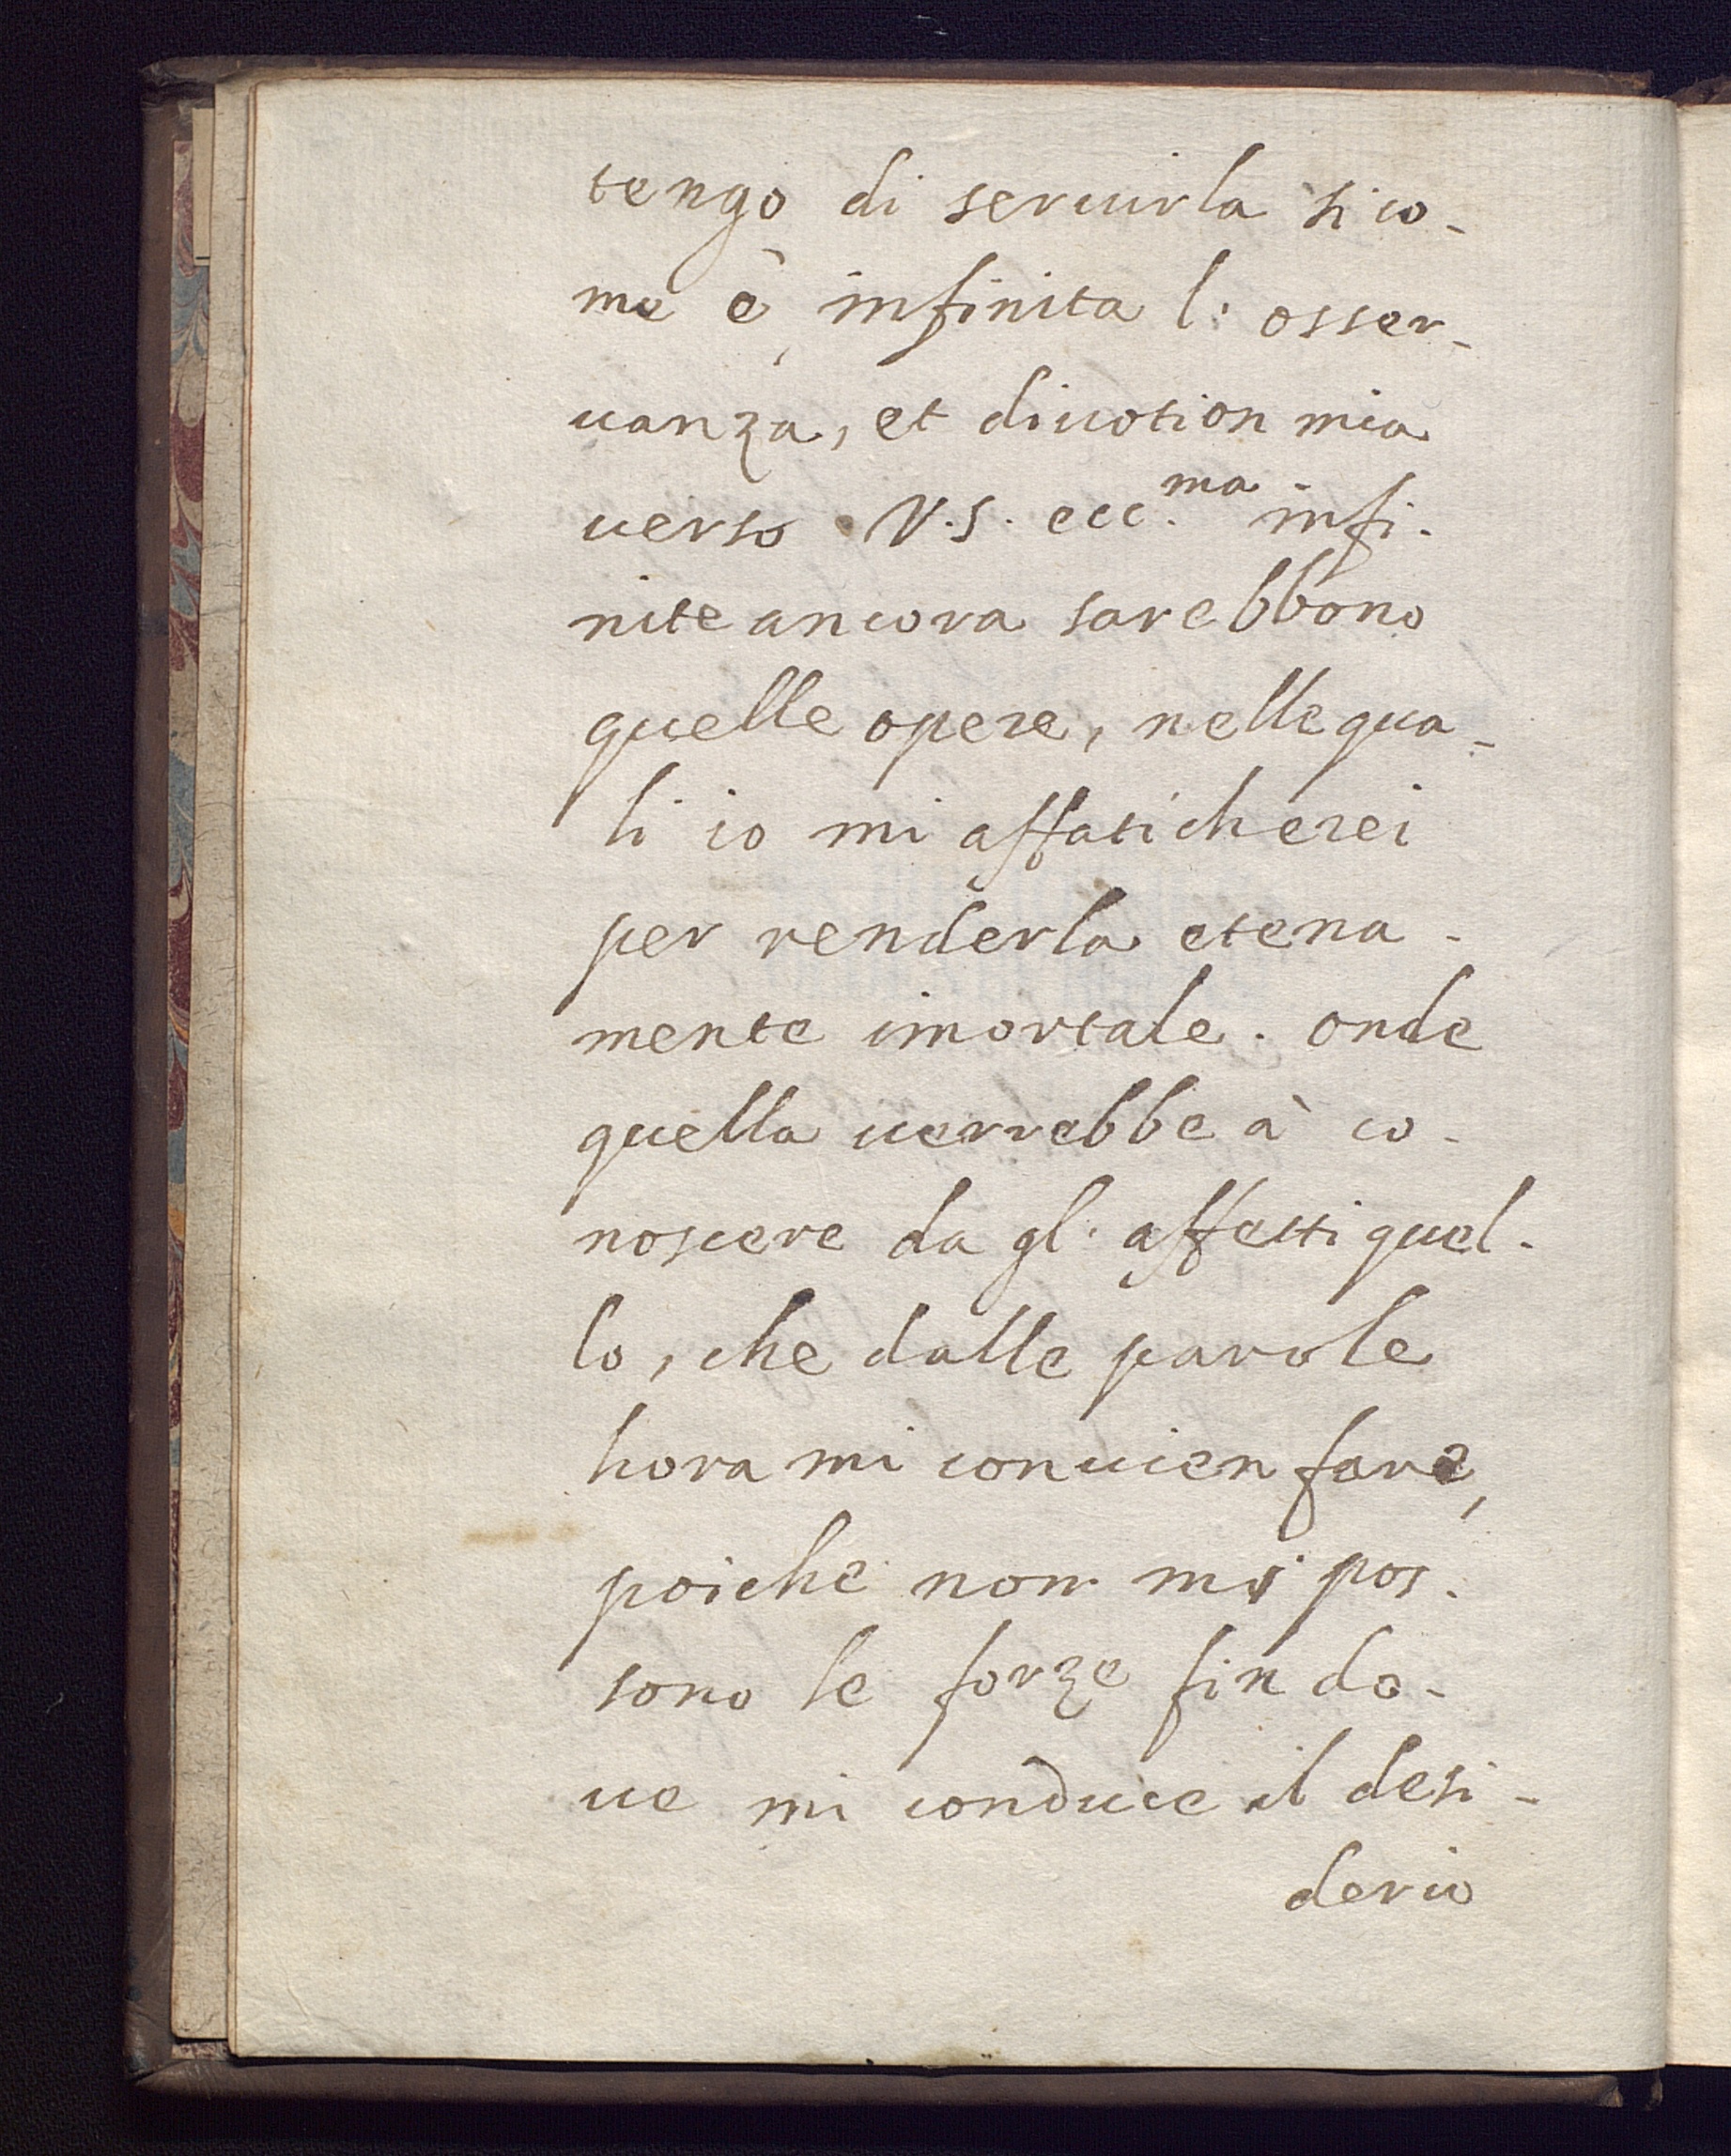 tengo di seruirla si co-
me è, infinita l' osser-
uanza, et diuotion mia
uerso V.S. ecc.ma infi-
nite ancora sarebbono
quelle opere, nelle qua-
li io mi affaticherei
per renderla etena-
mente imortale. onde
quella uerrebbe à co-
noscere da gl' affetti quel-
lo, che dalle parole
hora mi conuien fare,
poiche non mi pos-
sono le forze fin do-
ue mi conduce il desi-
derio